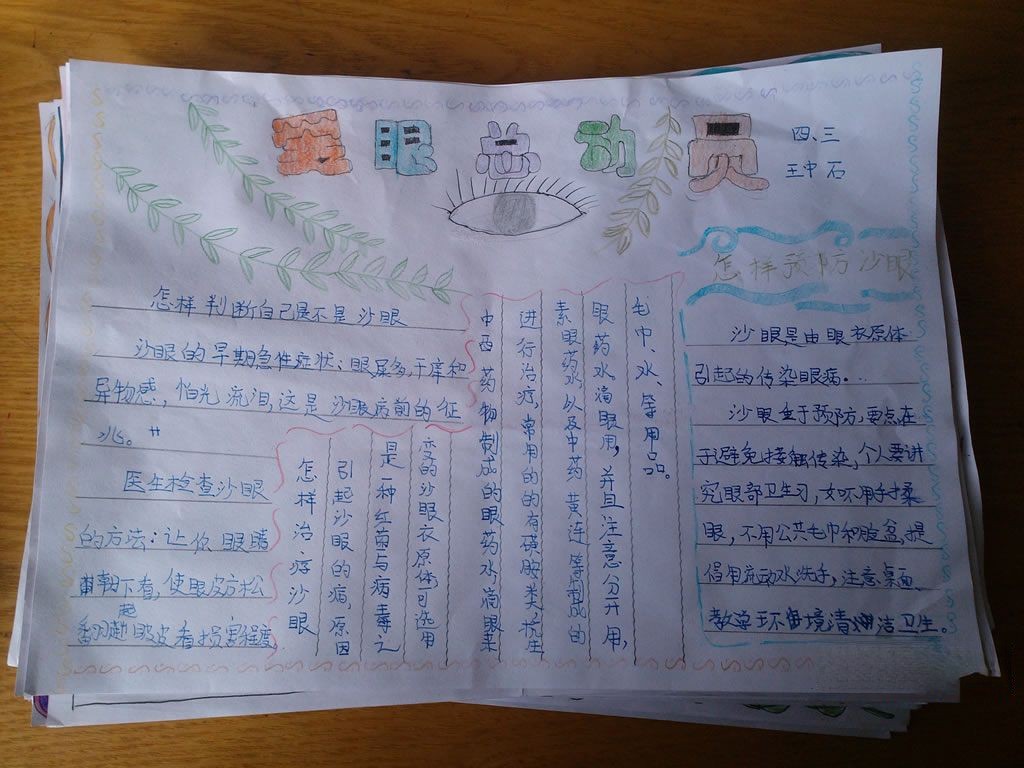 爱眼总动员
四、三
王中石
怎样判断自己是不是沙眼
沙眼的早期急性症状：眼屎多，干痒和
异物感，怕光流泪，这是沙眼病前的征
兆。
医生检查沙眼
的方法：让你眼睛
朝下看，使眼皮方松
翻起眼皮看损害程度
怎样治疗沙眼
引起沙眼的病，原因
是一种红菌与病毒之
交的沙眼衣原体，可选用
中西药物制成的眼药水，滴眼来
进行治疗，常用的的有磺胺类、抗生
素眼药水，以及中药黄连等制成的
眼药水滴眼用，并且注意分开用，
毛巾、水、等用品。
怎样预防沙眼
沙眼是由眼衣原体
引起的传染眼病。
沙眼主于预防，要点在
于避免接触传染，个人要讲
究眼部卫生习，如不用手揉
眼，不用公共毛巾和脸盆，提
倡用流动水洗手，注意桌面、
教室环境清洁卫生。